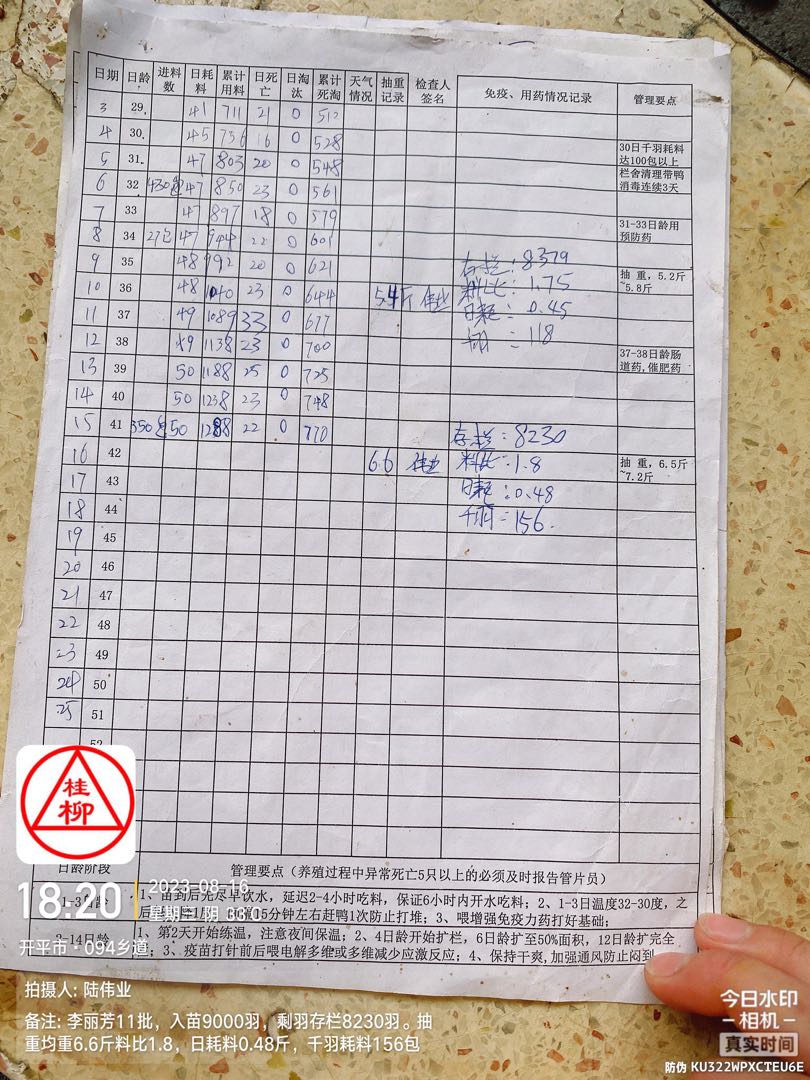 日期 日龄 进料数 日耗料 累计用料 日死亡 日淘汰 累计死淘 天气情况 抽重记录 检查人签名 免疫、用药情况记录 管理要点
3 29. 41 711 21 0 512
4 30. 45 756 16 0 528 30日千羽耗料达100包以上
5 31. 47 803 20 0 548 栏舍清理带鸭消毒连续3天
6 32 430包 47 850 23 0 561
7 33 47 897 18 0 579 31-33日龄用预防药
8 34 27包 47 944 22 0 601
9 35 48 992 20 0 621 存栏:8379 抽重,5.2斤~5.8斤
10 36 48 1040 23 0 644 5.4斤 伟业 料比:1.75
11 37 49 1089 33 0 677 日耗:0.45
12 38 49 1138 23 0 700 千羽:118 37-38日龄肠道药,催肥药
13 39 50 1188 25 0 725
14 40 50 1238 23 0 748
15 41 350包 50 1288 22 0 770 存栏:8230
16 42 6.6 伟业 料比:1.8 抽重,6.5斤~7.2斤
17 43 日耗:0.48
18 44 千羽:156.
19 45
20 46
21 47
22 48
23 49
24 50
25 51
52
日龄阶段 管理要点(养殖过程中异常死亡5只以上的必须及时报告管片员)
1、苗到后先尽早饮水,延迟2-4小时吃料,保证6小时内开水吃料;2、1-3日温度32-30度,之
15分钟左右赶鸭1次防止打堆;3、喂增强免疫力药打好基础;
1、第2天开始练温,注意夜间保温;2、4日龄开始扩栏,6日龄扩至50%面积,12日龄扩完全
3、疫苗打针前后喂电解多维或多维减少应激反应;4、保持干爽,加强通风防止闷到
桂柳
18:20
2023-08-16
星期三 阴 33℃
开平市·094乡道
拍摄人: 陆伟业
备注: 李丽芳11批,入苗9000羽,剩羽存栏8230羽。抽
重均重6.6斤料比1.8,日耗料0.48斤,千羽耗料156包
今日水印
相机
真实时间
防伪 KU322WPXCTEU6E